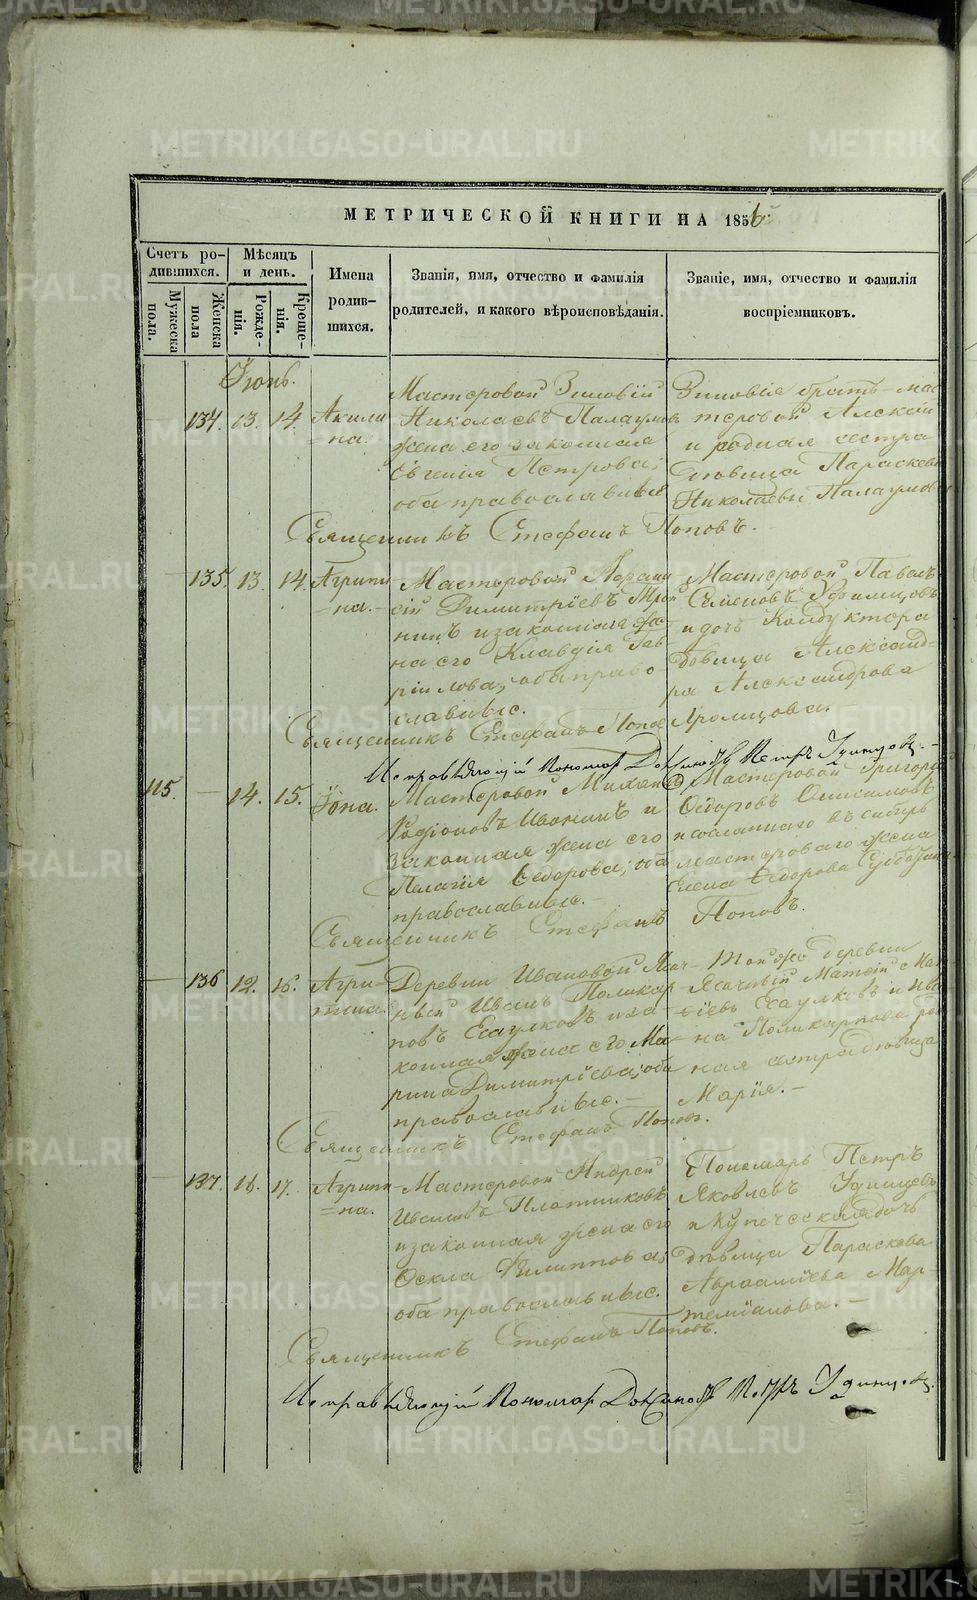 METRIKI.GASO-URAL.RU
МЕТРИЧЕСКОЙ КНИГИ НА 1856й
Счетъ родившихся.
Мѣсяцъ и день.
Имена родившихся.
Званія, имя, отчество и фамилія родителей, и какого вѣроисповѣданія.
Званіе, имя, отчество и фамилія воспріемниковъ.
Мужеска пола.
Женска пола
Рожденія.
Крещенія.
Іюнь.
134. 13. 14. Акили=на.
Мастеровой Зиновій
Николаевъ Палаумовъ
жена его законная
Евгенія Петрова;
оба православные
Зиновія братъ мас
теровой Алексѣй
и родная сестра
дѣвица Параскева
Николаевы Палаумовы
Священникъ Стефанъ Поповъ.
135. 13. 14. Агрипи=на.
Мастеровой
Димитріевъ
и законная же
на его Клавдія Гав
ріилова; оба право
славные.
Мастеровой Павелъ
Семеновъ
и дочь Кондуктора
дѣвица Александ-
ра Александрова
Священникъ Стефанъ Попов
Исправляющій Пономар Должность Петръ Удинцовъ.
115. — 14. 15. Іона.
Мастеровой Михаил
Родіоновъ Иванинъ и
законная жена его
Пелагія Ѳедорова; оба
православные.
Мастеровой Григорій
Ѳедоровъ Онисимовъ
и сосланнаго въ сибирь
мастероваго жена
Елена Ѳедорова
Священникъ Стефанъ Поповъ.
136 12. 16. Агрипина.
Деревни Ивановой Яса-
Иванъ Поликар
повъ Есаулковъ и за
конная жена его Ма
рина Димитріева; оба
православные.
Той же деревни
Ясачный Матѳій
Есаулковъ и Ива
на Поликарпова род
ная сестра дѣвица
Марія.
Священникъ Стефанъ Поповъ.
137. 16. 17. Агрипи=на.
Мастеровой Андрей
Ивановъ Плотниковъ
и законная жена его
Ѳекла Филиппова;
оба православные.
Пономарь Петръ
Яковлевъ Удинцевъ
и Купеческая дочь
дѣвица Параскева
Авраамиева Мар-
темианова.
Священникъ Стефанъ Поповъ.
Исправляющій Пономар Должность Петръ Удинцов.